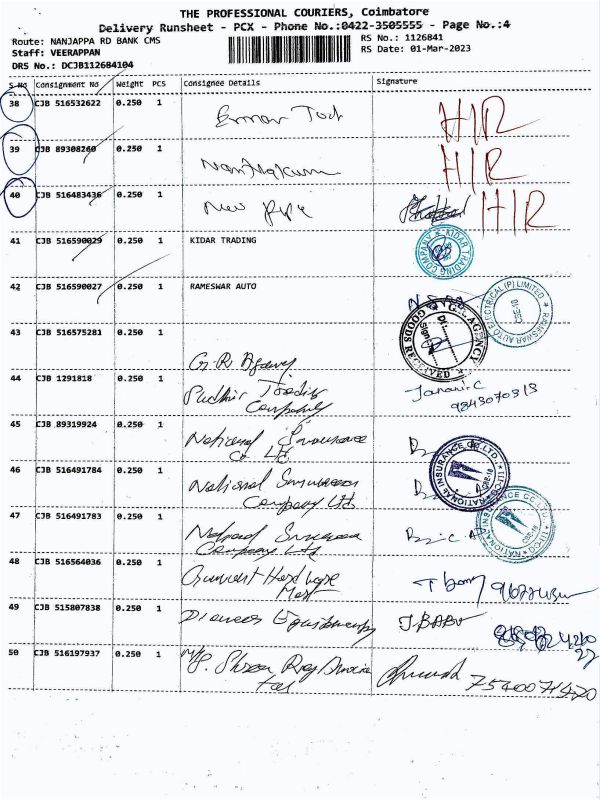 THE PROFESSIONAL COURIERS, Coimbatore
Delivery Runsheet - PCX - Phone No.:0422-3505555 - Page No.:4
Route: NANJAPPA RD BANK CMS
RS No.: 1126841
Staff: VEERAPPAN
RS Date: 01-Mar-2023
DRS No.: DCJB112684104
S.No Consignment No Weight PCS Consignee Details Signature
38 CJB 516532622 0.250 1 H/R
39 CJB 89308260 0.250 1 H/R
40 CJB 516483436 0.250 1 New H/R
41 CJB 516590029 0.250 1 KIDAR TRADING
KIDAR TRADING COMPANY
42 CJB 516590027 0.250 1 RAMESWAR AUTO
RAMESWAR AUTO ELECTRICAL (P) LIMITED
CBE-18
43 CJB 516575281 0.250 1
G.R. AGENCY
GOODS RECEIVED
44 CJB 1291818 0.250 1 Sudhir Trading Company Janani.C
45 CJB 89319924 0.250 1 National Insurance Co Ltd
NATIONAL INSURANCE CO.LTD.
46 CJB 516491784 0.250 1 National Insurance Company Ltd
47 CJB 516491783 0.250 1 National Insurance Company Ltd
NATIONAL INSURANCE CO LTD
48 CJB 516564036 0.250 1 Hardware Mart
49 CJB 515807838 0.250 1 Pioneer J.BABU
50 CJB 516197937 0.250 1 M/s. Shree